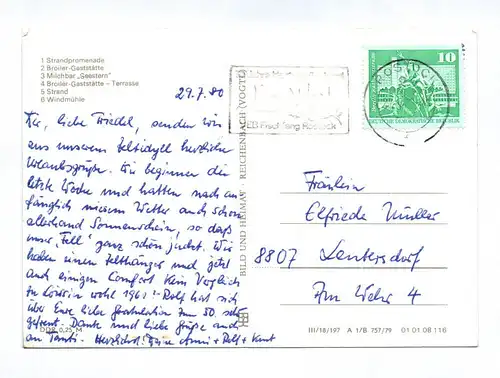 1 Strandpromenade
2 Broiler-Gaststätte
3 Milchbar „Seestern"
4 Broiler-Gaststätte – Terrasse
5 Strand
6 Windmühle
29.7.80
liebe Friedel, senden wir
aus unserem Zeltidyll herzliche
Urlaubsgrüße. Wir beginnen die
letzte Woche und hatten nach an-
fänglich miesem Wetter auch schon
allerhand Sonnenschein, so daß
unser „Fell" ganz schön juckt. Wir
haben einen Zelthänger und jetzt
auch einigen Comfort. Kein Vergleich
zu wohl 1961! Rolf hat sich
über Eure liebe Gratulation zum 50. sehr
gefreut. Dank und liebe Grüße auch
an Tanti. Herzlichst! Eure + Rolf + Knut
DDR 0,25 M
BILD UND HEIMAT REICHENBACH (VOGTL)
VEB Fischfang Rostock
ROSTOCK
10
DEUTSCHE DEMOKRATISCHE REPUBLIK
Fräulein
Elfriede Müller
8807 Leutersdorf
Am Wehr 4
III/18/197 A 1/B 757/79 01 01 08 116